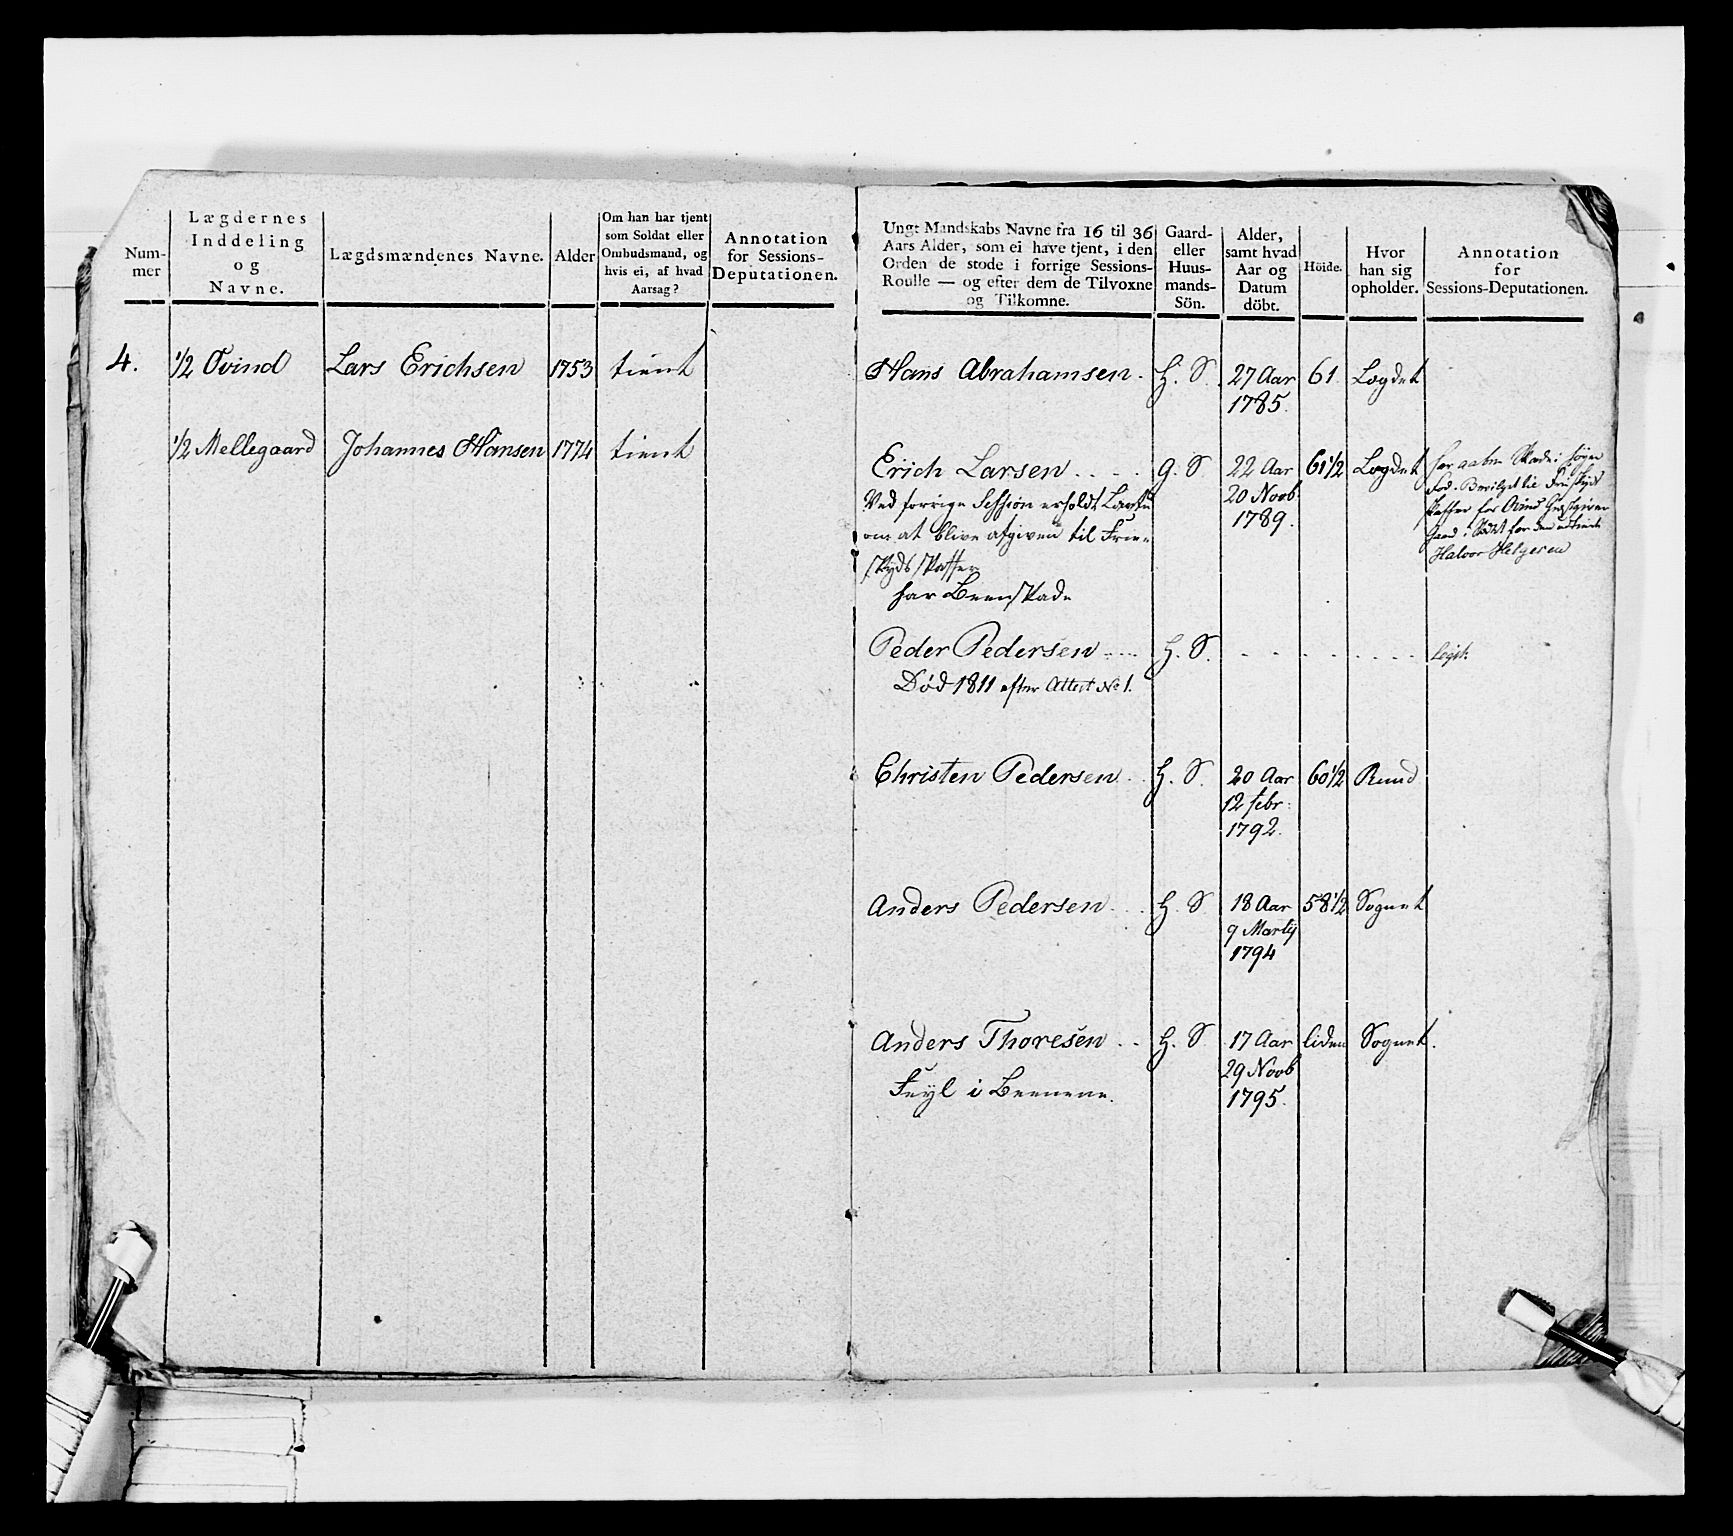 Num-
mer
Lægdernes
Inddeling
og
Navne.
Lægdsmændenes Navne.
Alder
Om han har tjent
som Soldat eller
Ombudsmand, og
hvis ei, af hvad
Aarsag?
Annotation
for Sessions-
Deputationen.
4. 1/2 Øvind Lars Erichsen 1753 tient
1/2 Mellegaard Johannes Hansen 1774 tient
Ungt Mandskabs Navne fra 16 til 36
Aars Alder, som ei have tjent, i den
Orden de stode i forrige Sessions-
Roulle — og efter dem de Tilvoxne
og Tilkomne.
Gaard-
eller
Huus-
mands-
Sön.
Alder,
samt hvad
Aar og
Datum
döbt.
Höide.
Hvor
han sig
opholder.
Annotation
for
Sessions-Deputationen.
Hans Abrahamsen. H. S. 27 Aar 61 Lægdet
1785.
Erich Larsen . . . . G. S 22 Aar 61 1/2 Lægdet
20 Novb
1789.
har aaben Skade i høyre
Fod. Bevilget til Friskyds
skaffer for Øvind Giæstgiver
Gaard i Stædet for den udtiente
Halvor Helgesen
Ved forrige Session erholdt Løvte
om at blive afgiven til Frie-
skydsskaffer
har Beenskade
Peder Pedersen ..... H. S. - - - - - - -
Død 1811 efter Attest No 1.
Christen Pedersen . . H. S. 20 Aar 60 1/2 Ruud
12 febr:
1792.
Anders Pedersen . . . H. S 18 Aar 58 1/2 Sognet
9 Martij
1794
Anders Thoresen . . H. S 17 Aar liden Sognet.
29 Novb
1795.
Feyl i Beenene.